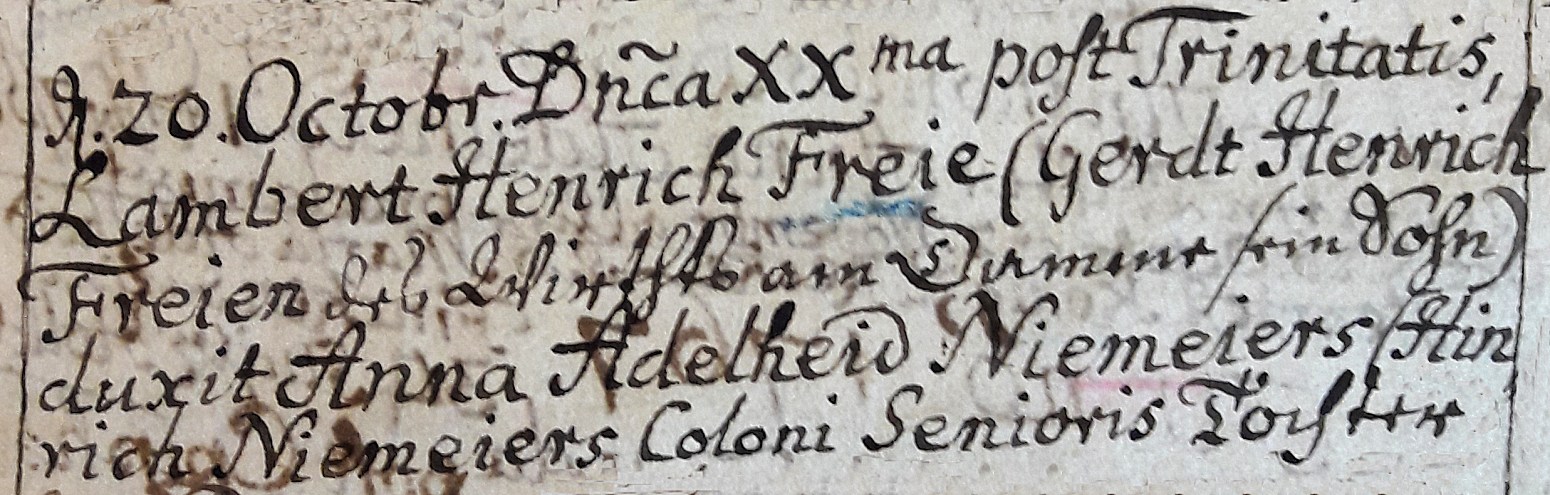 d. 20. Octobr. Dnc̃a XXma post Trinitatis,
Lambert Henrich Freie (Gerdt Henrich
Freien des Wirthß am Damme sein Sohn)
duxit Anna Adelheid Niemeiers (Hin
rich Niemeiers Coloni Senioris Tochter